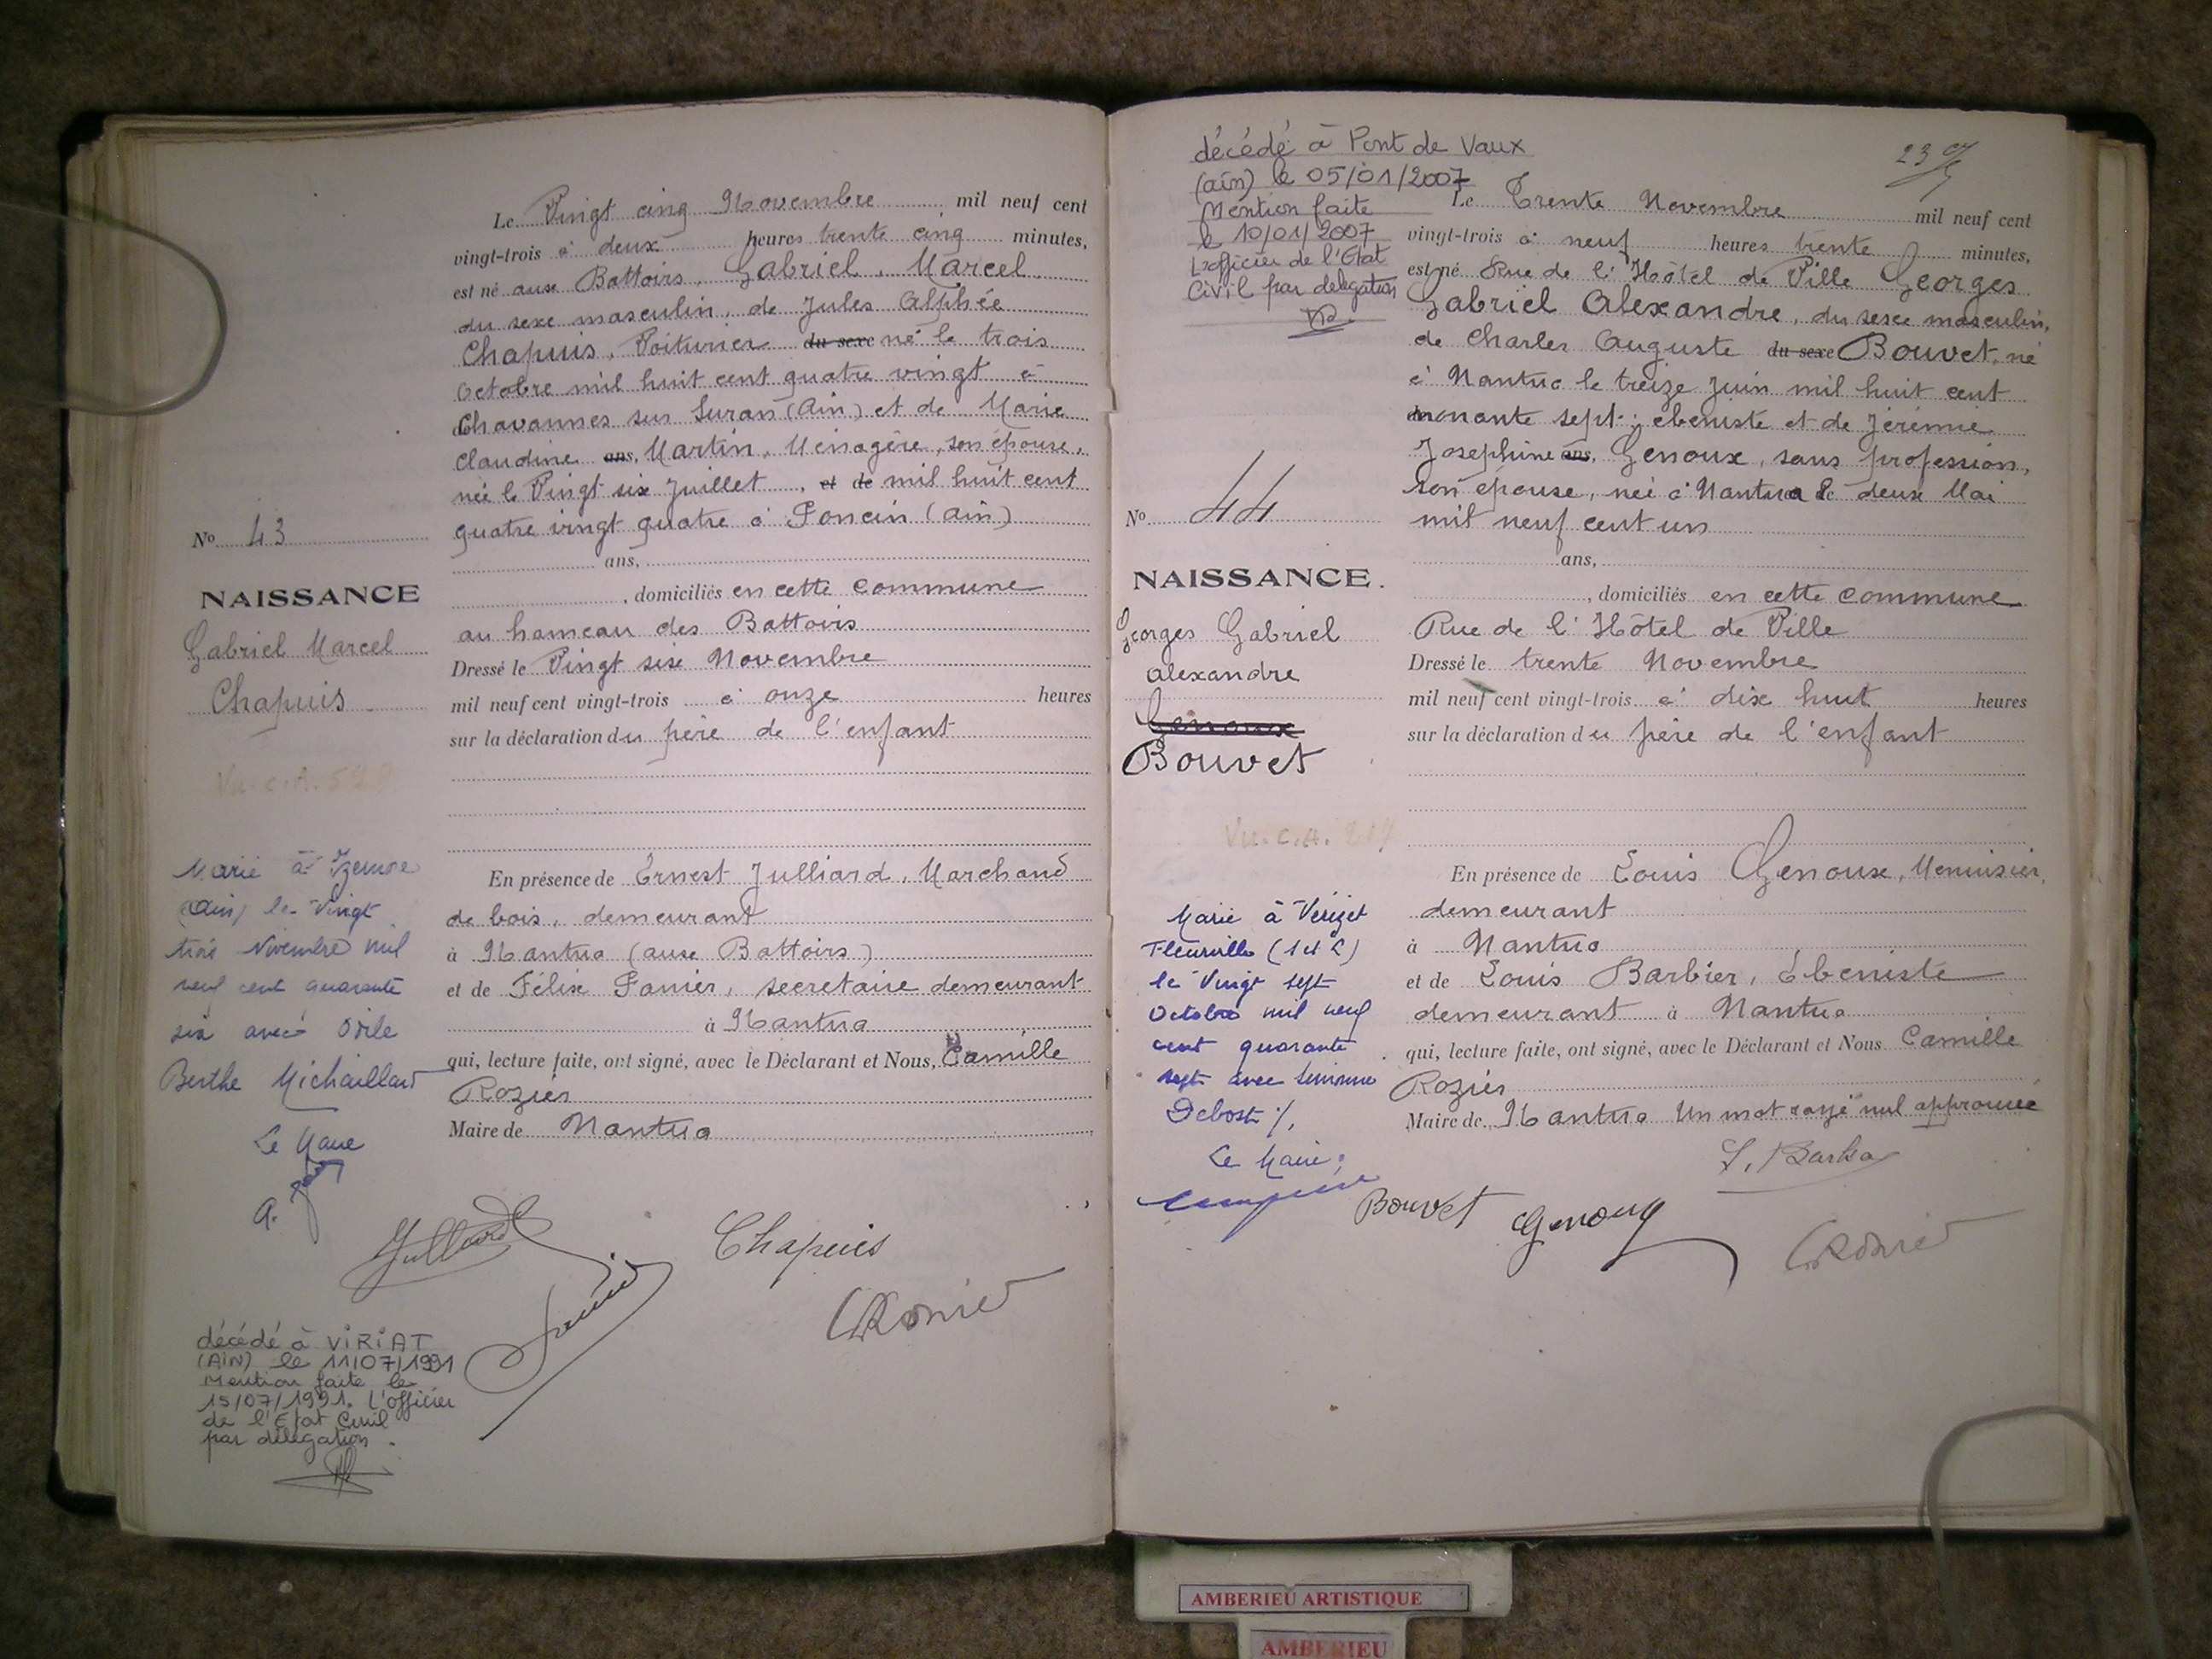 Le Vingt cinq Novembre mil neuf cent
vingt-trois à deux heures trente cinq minutes,
est né aux Battoirs, Gabriel, Marcel
du sexe masculin, de Jules Alphée
Chapuis, Voiturier du sexe né le trois
Octobre mil huit cent quatre vingt à
Chavannes sur Suran (Ain) et de Marie
Claudine ans, Martin, Ménagère, son épouse,
née le Vingt six Juillet, et de mil huit cent
quatre vingt quatre à Poncin (Ain)
ans,
, domiciliés en cette commune
au hameau des Battoirs
Dressé le Vingt six Novembre
mil neuf cent vingt-trois à onze heures
sur la déclaration du père de l'enfant
En présence de Ernest Julliard, Marchand
de bois, demeurant
à Nantua (aux Battoirs)
et de Félix Panier, secretaire demeurant
à Nantua
qui, lecture faite, ont signé, avec le Déclarant et Nous, Camille
Rozier
Maire de Nantua
No 43
NAISSANCE
Gabriel Marcel
Chapuis
Vu. C.A.
Marié à Izernore
(Ain) le Vingt
trois Novembre mil
neuf cent quarante
six avec Odile
Berthe Michaillard
Le Maire
A.
Julliard
Chapuis
Panier
CRozier
décédé à VIRIAT
(AIN) le 11/07/1991
Mention faite le
15/07/1991. L'officier
de l'Etat Civil
par délégation.
décédé à Pont de Vaux
(ain) le 05/01/2007
Mention faite
le 10/01/2007
L'officier de l'Etat
Civil par delegation
23
Le Trente Novembre mil neuf cent
vingt-trois à neuf heures trente minutes,
est né Rue de l'Hôtel de Ville Georges
Gabriel Alexandre, du sexe masculin,
de Charles Auguste du sexe Bouvet, né
à Nantua le treize Juin mil huit cent
nonante sept, ébeniste et de Jérémie
Josephine ans, Genoux, sans profession,
son épouse, née à Nantua le deux Mai
mil neuf cent un
ans,
, domiciliés en cette commune
Rue de l'Hôtel de Ville
Dressé le trente Novembre
mil neuf cent vingt-trois à dix huit heures
sur la déclaration du père de l'enfant
En présence de Louis Genoux, Menuisier,
demeurant
à Nantua
et de Louis Barbier, Ébeniste
demeurant à Nantua
qui, lecture faite, ont signé, avec le Déclarant et Nous Camille
Rozier
Maire de Nantua Un mot rayé nul approuvé
No 44
NAISSANCE.
Georges Gabriel
Alexandre
Genoux
Bouvet
Vu. C.A.
Marié à Vérizet
Fleurville (S et L)
le Vingt sept
Octobre mil neuf
cent quarante
sept avec Simonne
Debost
Le Maire,
Bouvet
Genoux
CRozier
AMBERIEU ARTISTIQUE
AMBERIEU